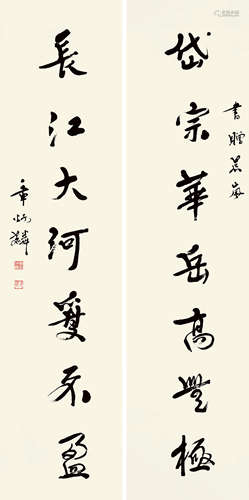 書贈
岱宗華岳高無極
長江大河不盈
章炳麟